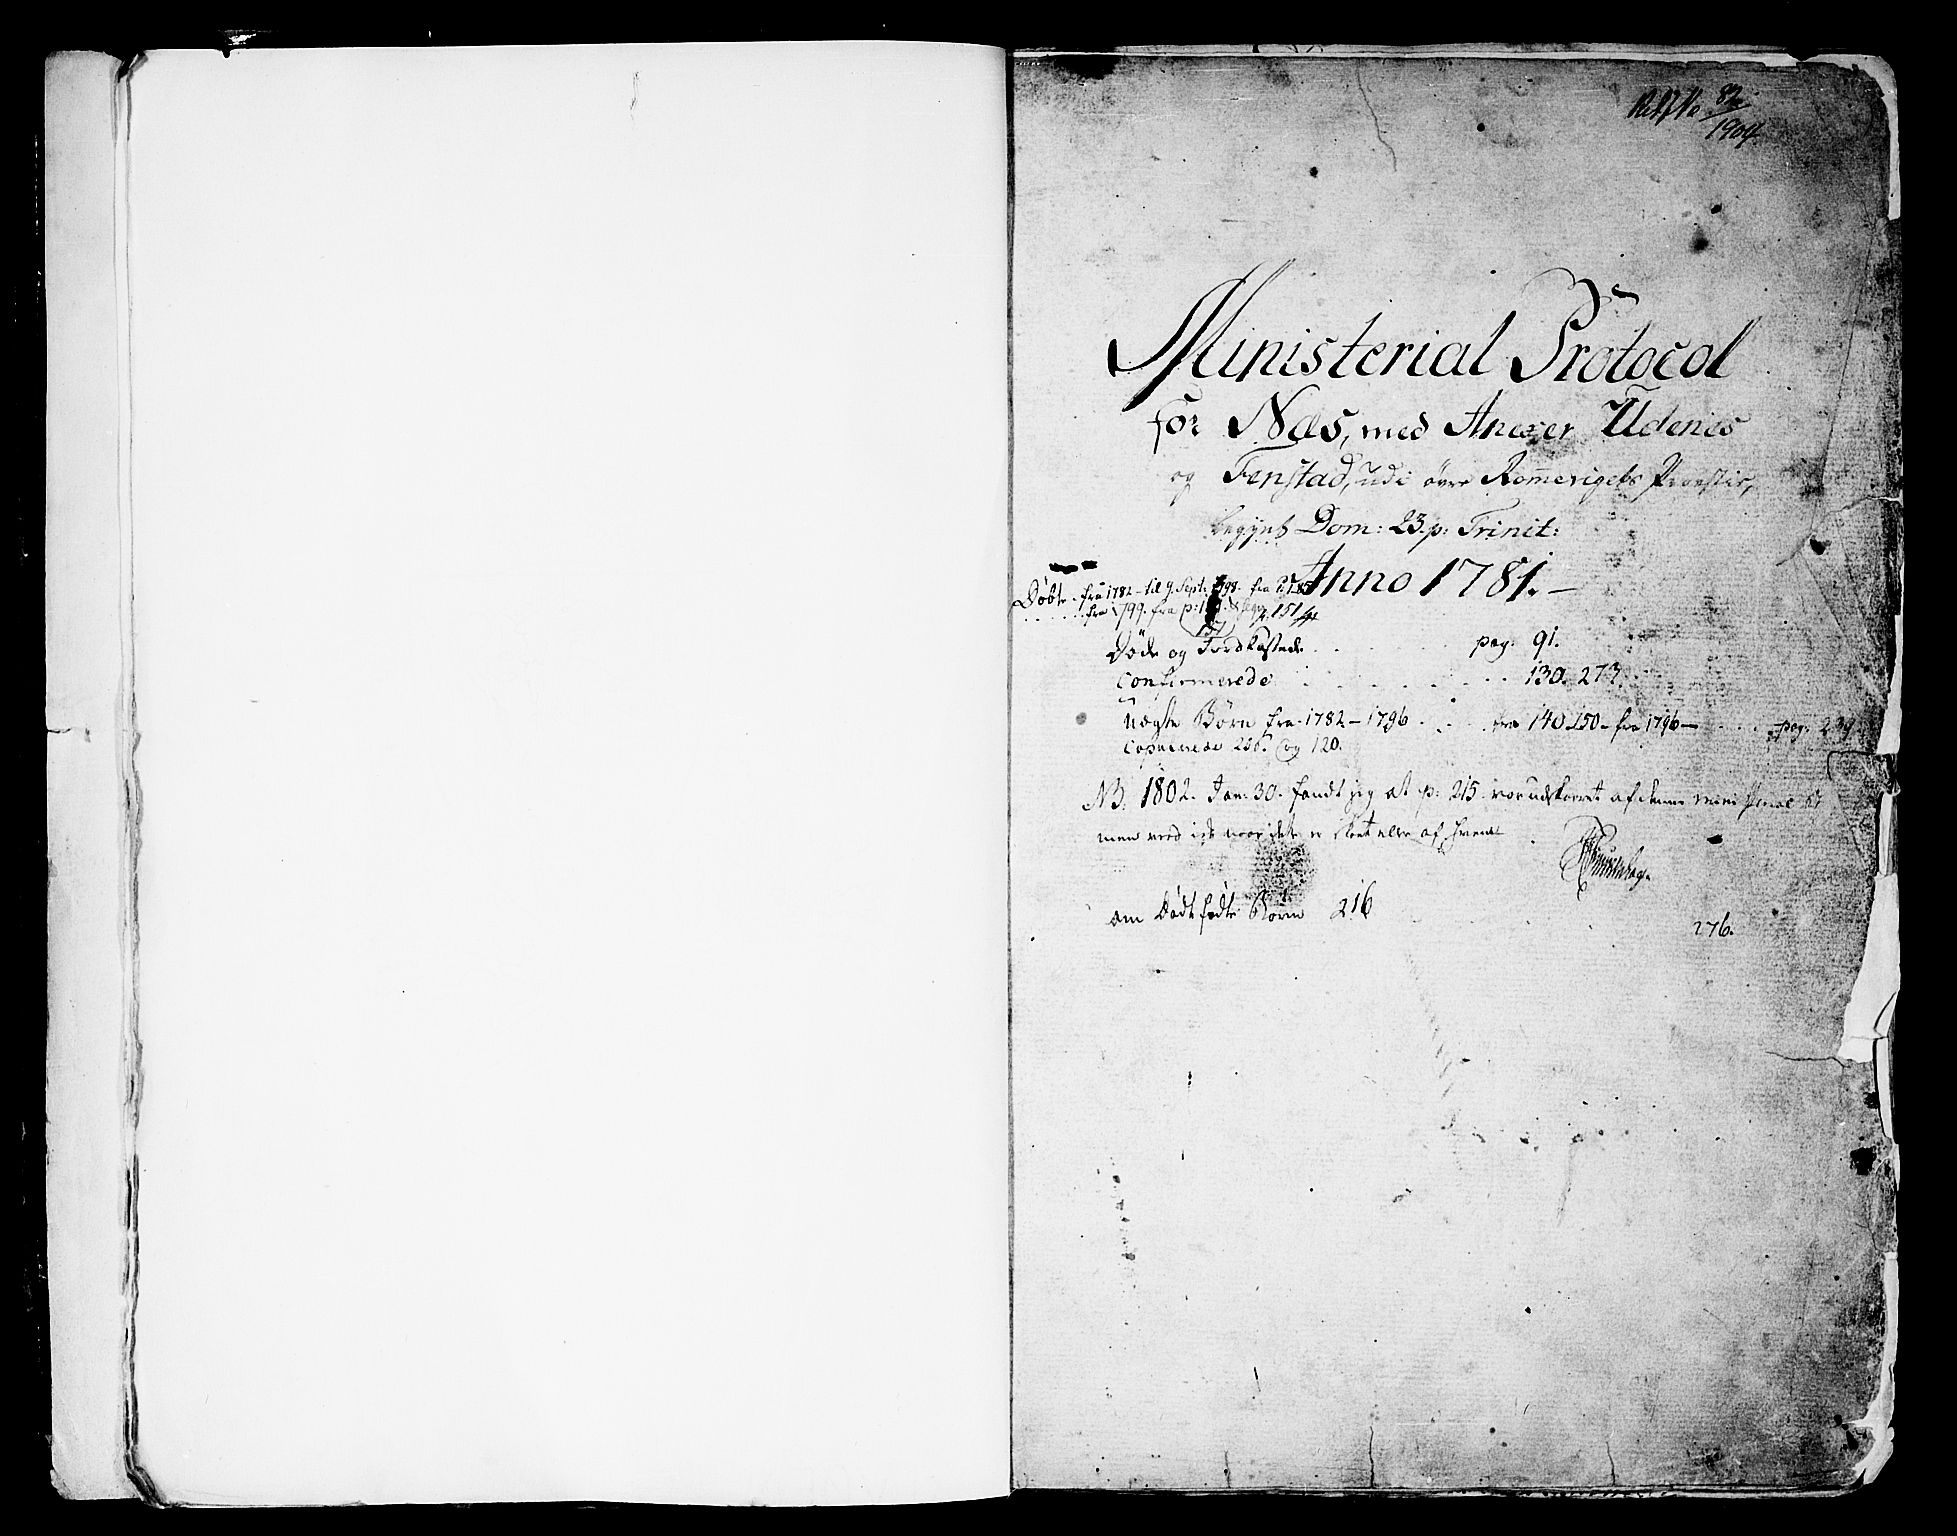 1904
Ministerial Protocol
for Næs, med Anexer Udenes
og Fenstad, udi øvre Romerigets Provstie,
begynt Dom: 23. p: Trinit:
Anno 1781.
Døbte fra 1782 - til 9 Sept: 1798. fra
fra 1799. fra p: 151
Døde og pag: 91.
Confirmerede 130. 273
Uægte Børn fra 1782 - 1796 fra 140-150 - fra 1796 - pag: 239
Copulerede og 120.
NB. 1802. Jan: 30. fandt jeg at p: 215 var udskaaret af denne
men veed ikke naar det er skeet eller af hvem
om Dødfødte Børn 216
276.